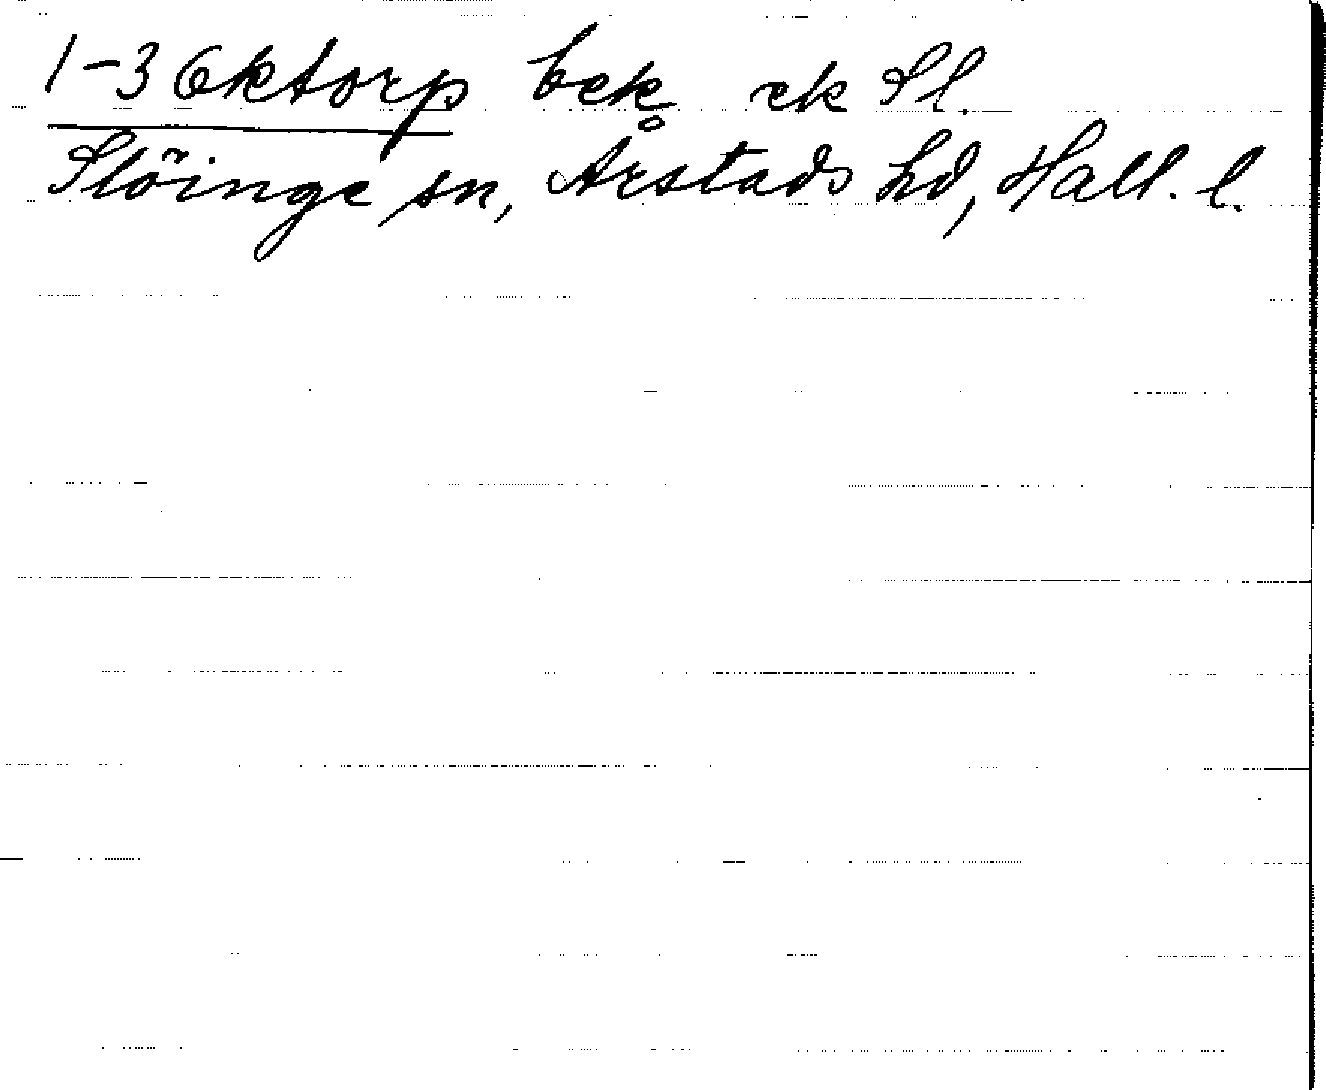 1-3 Ektorp bek ek Sl.
Slöinge sn, Årstads hd, Hall. l.